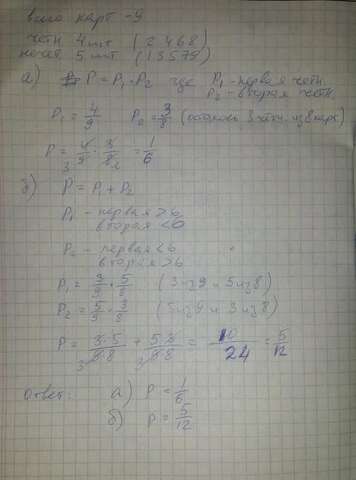 всего карт - 9
четн 4 шт (2 4 6 8)
нечет 5 шт (1 3 5 7 9)
а) P = P₁ · P₂ где P₁ - первая четн.
P₂ - вторая четн.
P₁ = 4/9 P₂ = 3/8 (осталось 3 четн. из 8 карт)
P = 4/9 · 3/8 = 1/6
б) P = P₁ + P₂
P₁ - первая > 6
вторая < 6
P₂ - первая < 6
вторая > 6
P₁ = 3/9 · 5/8 (3 из 9 и 5 из 8)
P₂ = 5/9 · 3/8 (5 из 9 и 3 из 8)
P = 3·5/9·8 + 5·3/9·8 = 10/24 = 5/12
Ответ: а) P = 1/6
б) P = 5/12